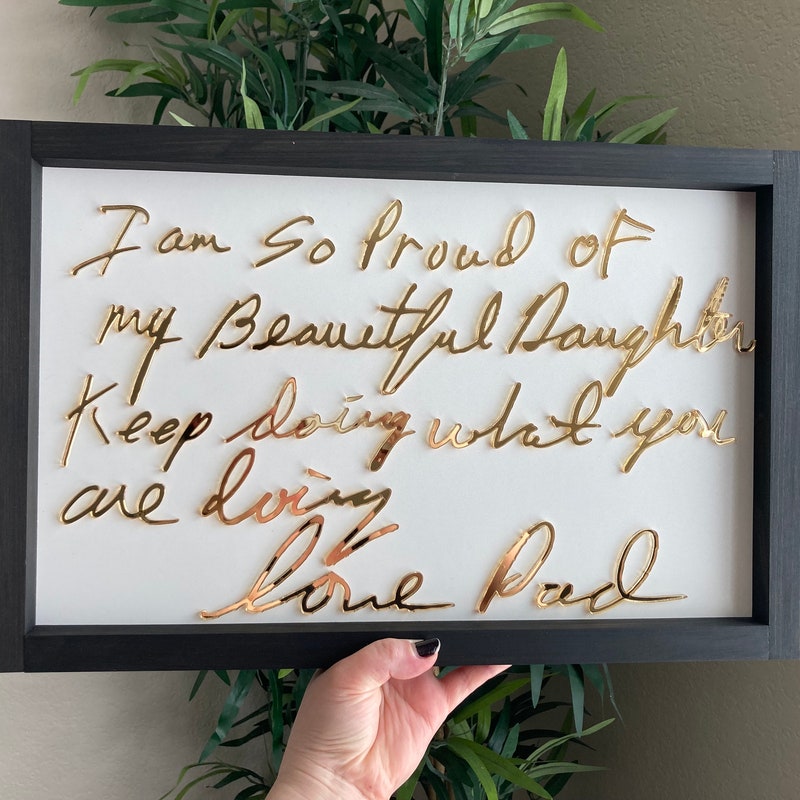 I am So Proud of
my Beauetful Daughter
Keep doing what you
are doing
Love Dad